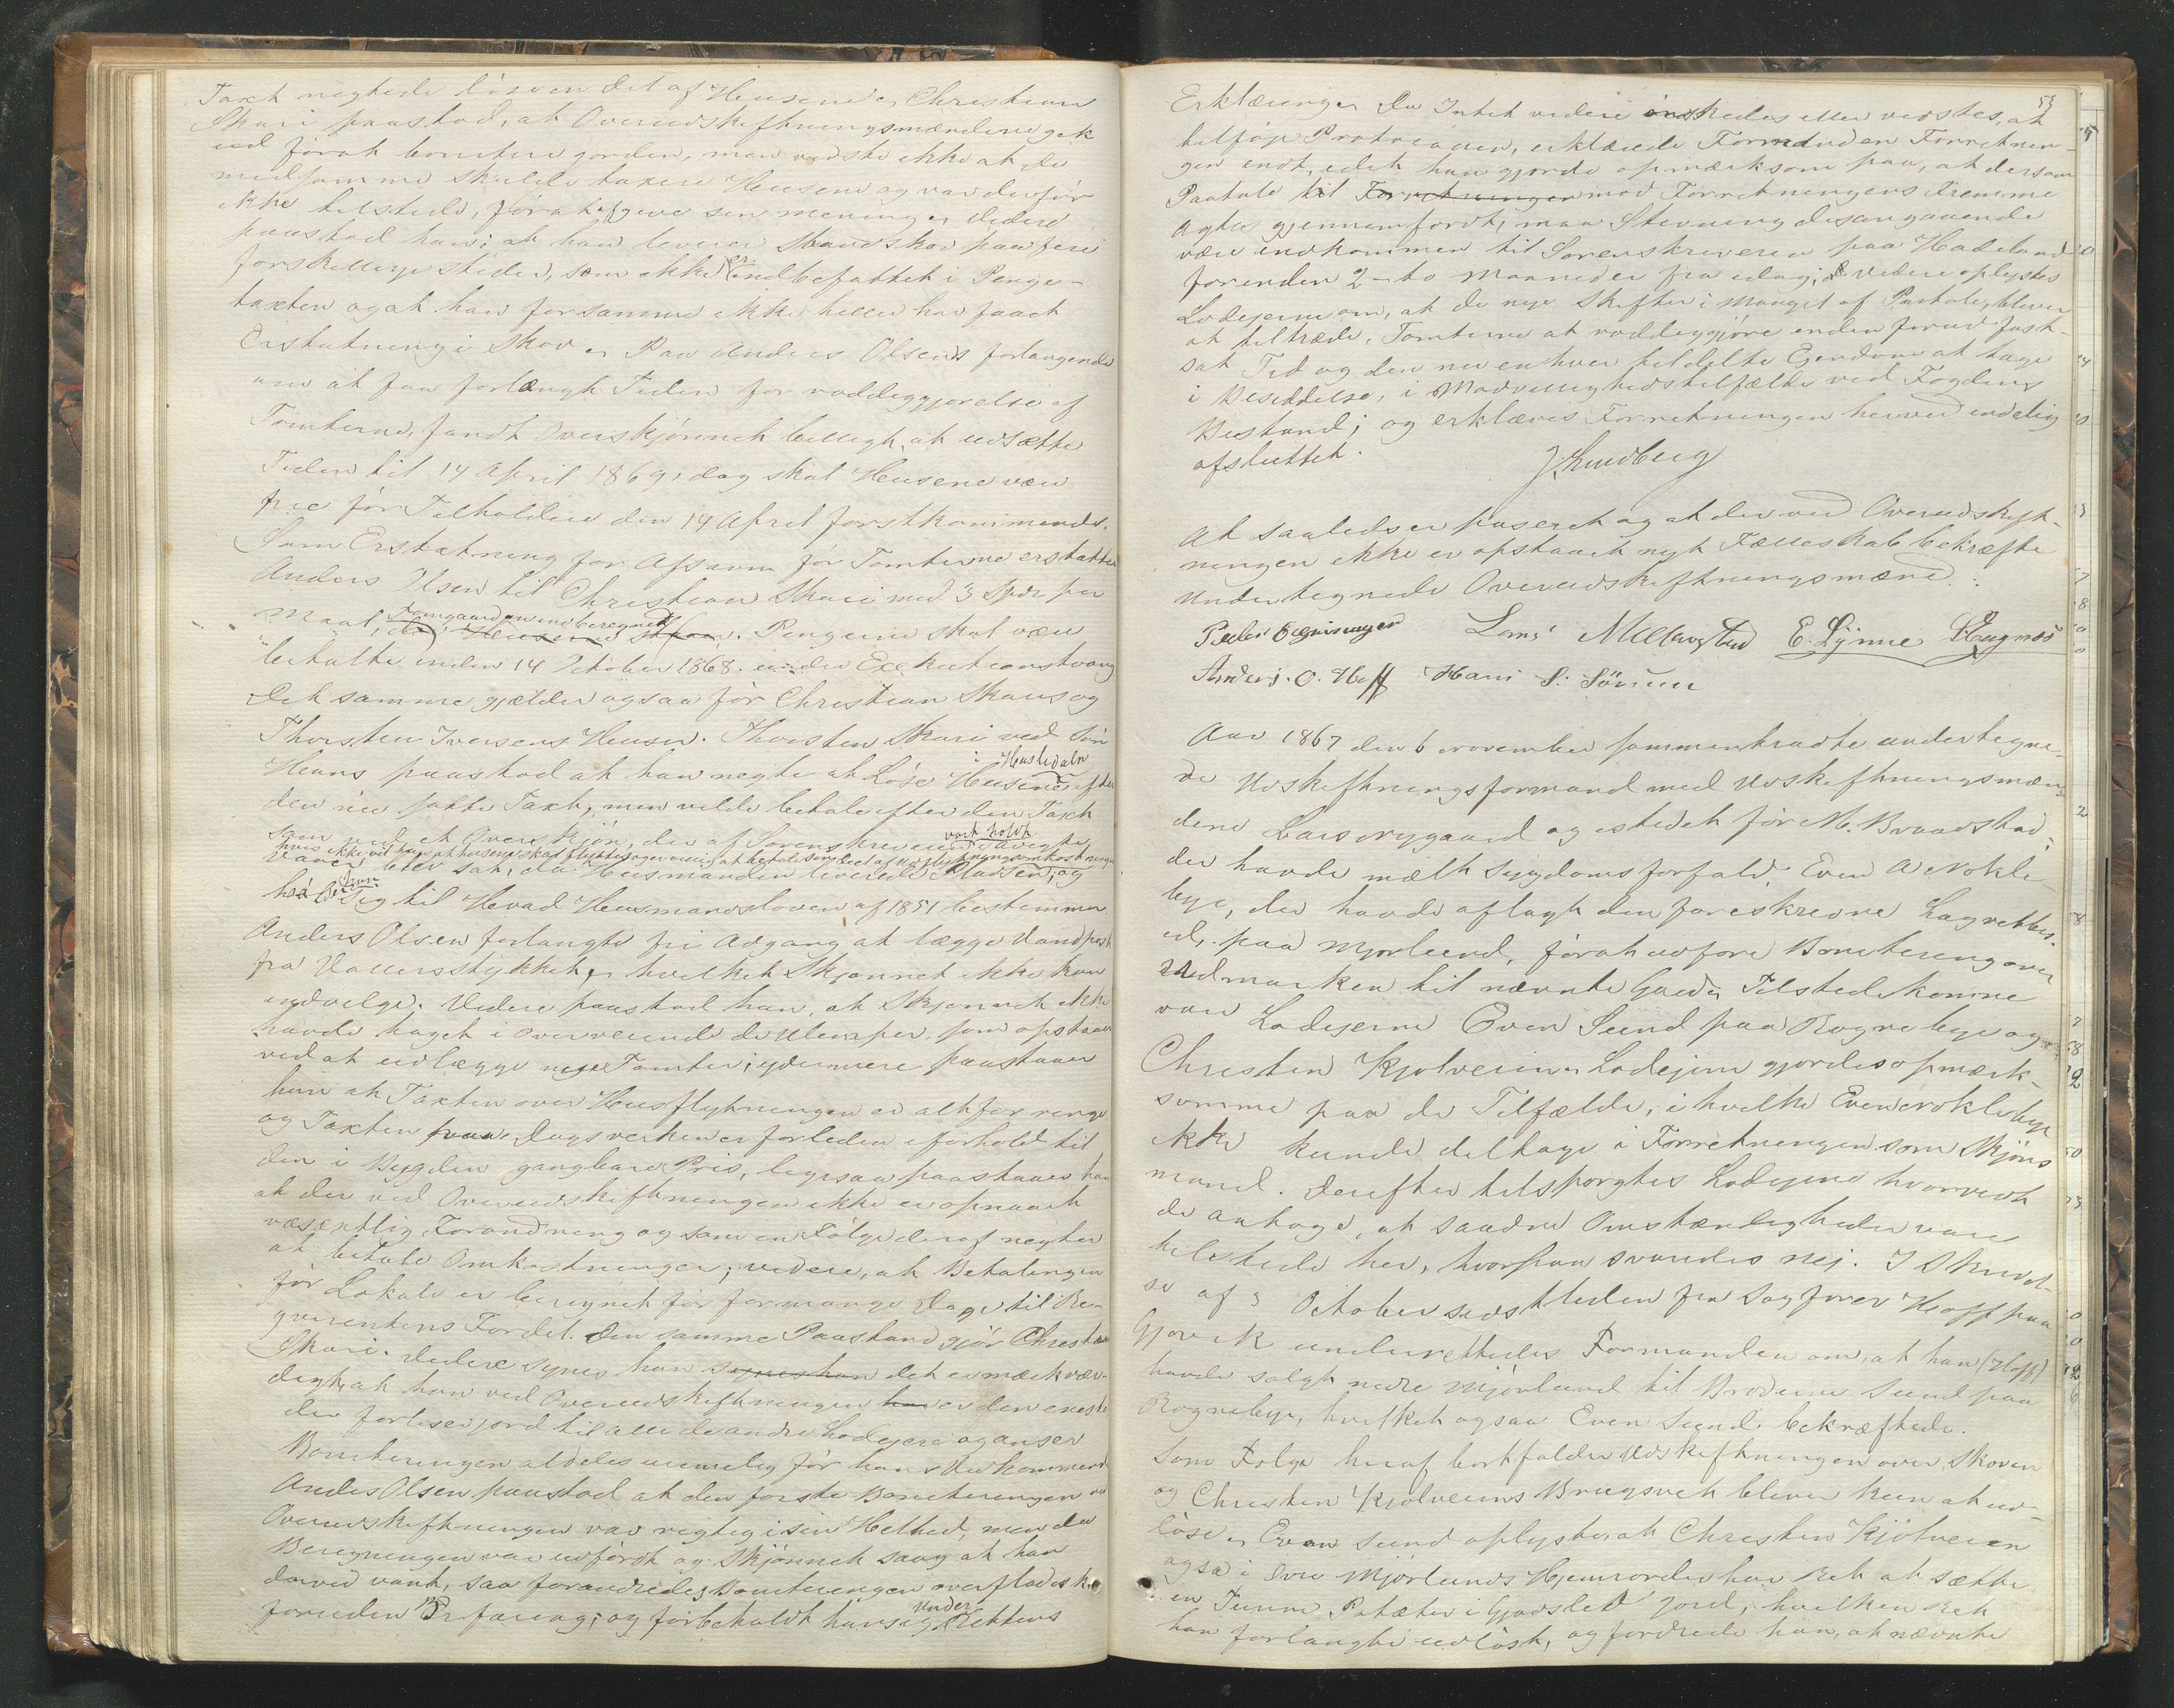 Taxt negtede löse en del af Husene. Christian
Skari paastod, at Overudskiftningsmændene gik
ud förat bonitere jorden, men vidste ikke at de
medsamme skulde taxere Husene og var derfor
ikke tilstede, förat afgive sin mening. Videre
paastod han; at han leverer Havneskov paa fere
forskjellige steder, som ikke er indbefattet i Penge-
taxten og at han forsamme ikke heller har faaet
Erstatning i Skov. Paa Anders Olsens forlangende
om at faa forlængt Tiden for ryddeggjorelse af
Tomterne, fandt Overskjönnet billigt, at udsætte
Tiden til 14 April 1869, dog skal Husene være
frie för Tilholdere den 14 April förstkommende.
Som Erstatning for Afsavn för Tomterne erstatter
Anders Olsen til Christian Skari med 3 Spdr per
Maal, Tomgaarden indberegnet. Pengerne skal være
betalte inden 14 October 1868. under Exekutionstvang
Det samme gjælder ogsaa för Christian Skaris og
Thorsten Iversens Huse. Thorsten Skari ved Sön
Hans paastod at han negter at Löse Husene i Hustedaln efter
den nu satte Taxt, men vilde betale efter den Taxt
som ved et Overskjön, der af Sorenskriveren vart holdt
hvis ikke vil han at husene skal flyttes og er villig at betale sin Deel af udflytningsomkostninger
blev sat, da Husmanden leverede Pladsen, og
han sig til Hvad Husmandsloven af 1851 bestemmer.
Anders Olsen forlangte fri Adgang at lægge Vandpost
fra Vallersstykket, hvilket Skjønnet ikke kan
indvilge. Videre paastod han, at Skjønnet ikke
havde taget i overveiende de Ulemper, som opstaaer
ved at udlægge nye Tomter; ydermere paastaaer
han at Taxten over Husflytningen er altfor ringe
og Taxten paa Dagsverker er forliden iforhold til
den i Bygden gangbare Pris, ligesaa paastaaer han
at der ved Overudskiftningen ikke er opnaaet
væsentlig Forandring og som en Fölge deraf negter
at betale Omkostninger; videre, at Betalingen
för Lokale er beregnet för formange Dage til Re-
qvirentens Fordel. Den samme Paastand gjör Christian
Skari. Videre synes han synes han det er mærkvær-
digt, at han ved Overudskiftningen har er den eneste
der forliser jord til alle de andre Lodejere og anser
Boniteringen aldeles urimelig för hans Vedkommende
Anders Olsen paastod at den förste Boniteringen ved
Overudskiftningen var rigtig i sin Helhed, men da
Beregningen var udfört og Skjönnet saae at han
derved vant, saa forandredes Boniteringen overfladisk
foruden Befaring; og forbeholdt han sig Under Rettens
53
Erklæringer. Da Intet videre önskedes eller vidstes, at
tilföje Protocollen, erklærede Formanden Forretnin-
gen endt, idet han gjorde opmærksom paa, at dersom
Paatale til Forretningen mod Forretningens Fremme
agtes gjennemfort, maa Stevning desangaaende
være indkommen til Sorenskriveren paa Hadeland
forenden 2-to Maaneder fra idag; Videre oplystes
Lodejerne om, at de nye Skifter i Mangel af Paatale, bliver
at tiltræde, Tomterne at ryddeggjöre inden forud fast-
sat Tid og den nu enhver tildelte Ejendom at tage
i Besiddelse, i Modvillighedstilfælde ved Fogdens
Bestand; og erklæres Forretningen herved endelig
afsluttet.
J. Lundberg
At saaledes er passeret og at der ved Overudskift-
ningen ikke er opstaaet nyt Fælleskab bekræfte
Undertegnede Overudskiftningsmænd.
Peder Egninger Lars Mellangstad E. Lÿnne
Anders. O. Hoff Hans S: Sörum
Aar 1867 den 6 november sammentraadte undertegne-
de Udskiftningsformand med Udskiftningsmæn-
dene Lars nygaard og istedet för M. Braastad,
der havde mælt Sygdomsforfald, Even A Nokle-
bye, der havde aflagt den foreskrevne Lagrettes-
ed, paa Mjorlund, förat udfore Bonitering over
Udmarken til nævnte Gaard. Tilstedekomne
var Lodejerne Even Sund paa Rognebye og
Christen Kjolvein. Lodejerne gjordes opmærk-
somme paa de Tilfælde, i hvilke Even noklebye
ikke kunde deltage i Forretningen som Skjöns
mand. Derefter tilsporgtes Lodejerne hvorvidt
de antoge, at saadne Omstændigheder var
tilstede her, hvorpaa svaredes nej. I Skrivel-
se af 3 October sidstleden fra Sagforer Hoff paa
Gjovik underrettedes Formanden om, at han (Hoff)
havde solgt nedre Mjörlund til Broderne Sund paa
Rognebye, hvilket ogsaa Even Sund bekræftede.
Som Folge heraf bortfalder Udskiftningen over Skoven
og Christen Kjolveins Brugsret bliver kun at ud-
löse. Even Sund oplyste, at Christen Kjölveien
ogsa i Ovre Mjörlunds Hjemjorder har Ret at sætte
en Tunne Potæter i Gjodslet jord, hvilken Ret
han forlangte udlöst, og fordrede han, at nævnte